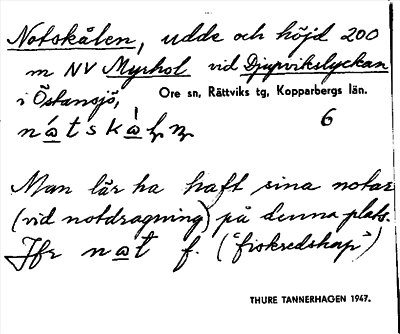 Notskålen, udde och höjd 200
m NV Myrhol vid Djupvikslyckan
i Östansjö, Ore sn, Rättviks tg, Kopparbergs län.
6
Man lär ha haft sina notar
(vid notdragning) på denna plats.
Jfr nat f. ("fiskredskap")
THURE TANNERHAGEN 1947.